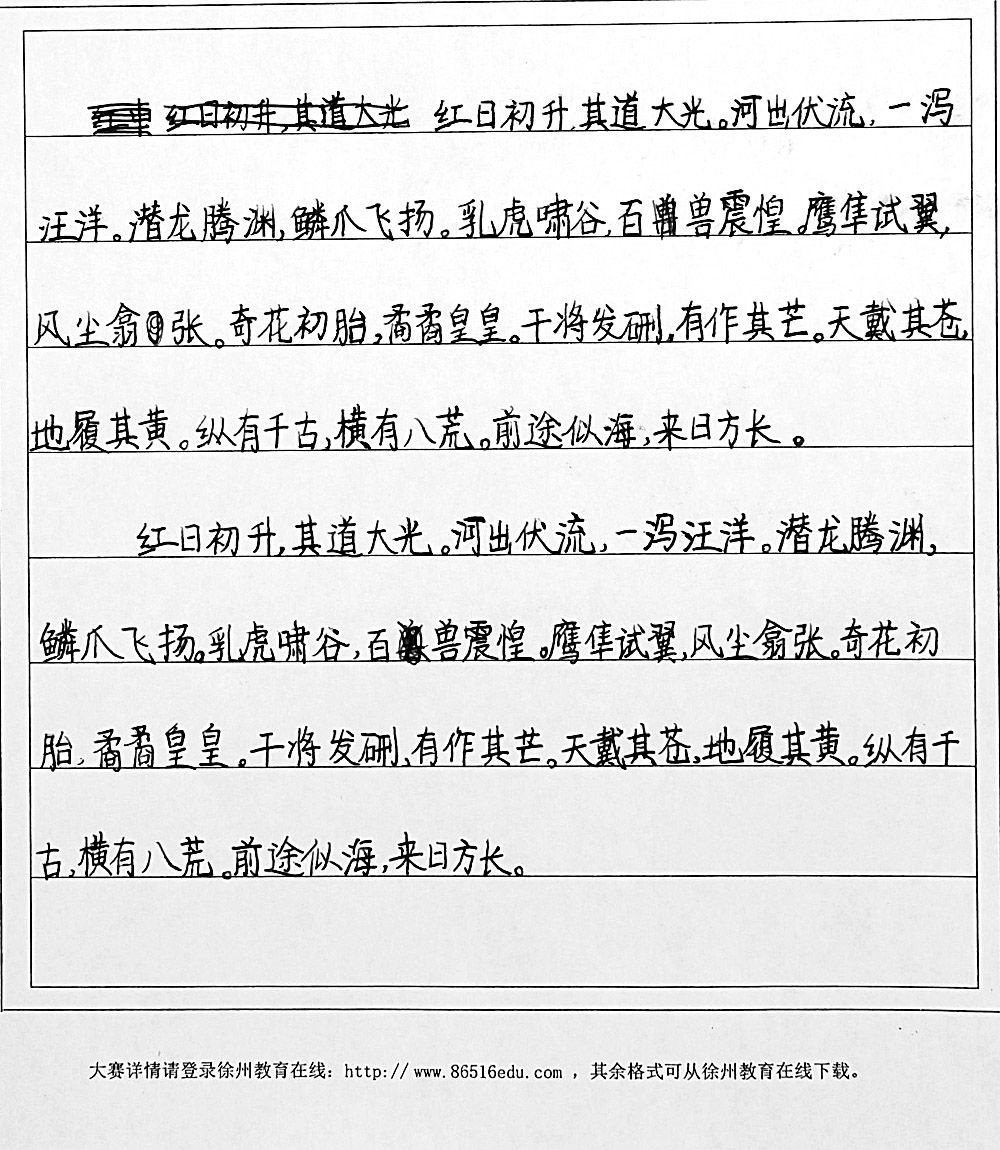 红日初升,其道大光。河出伏流,一泻
汪洋。潜龙腾渊,鳞爪飞扬。乳虎啸谷,百兽震惶。鹰隼试翼,
风尘翕张。奇花初胎,矞矞皇皇。干将发硎,有作其芒。天戴其苍,
地履其黄。纵有千古,横有八荒。前途似海,来日方长。
红日初升,其道大光。河出伏流,一泻汪洋。潜龙腾渊,
鳞爪飞扬。乳虎啸谷,百兽震惶。鹰隼试翼,风尘翕张。奇花初
胎,矞矞皇皇。干将发硎,有作其芒。天戴其苍,地履其黄。纵有千
古,横有八荒。前途似海,来日方长。
大赛详情请登录徐州教育在线：http://www.86516edu.com，其余格式可从徐州教育在线下载。